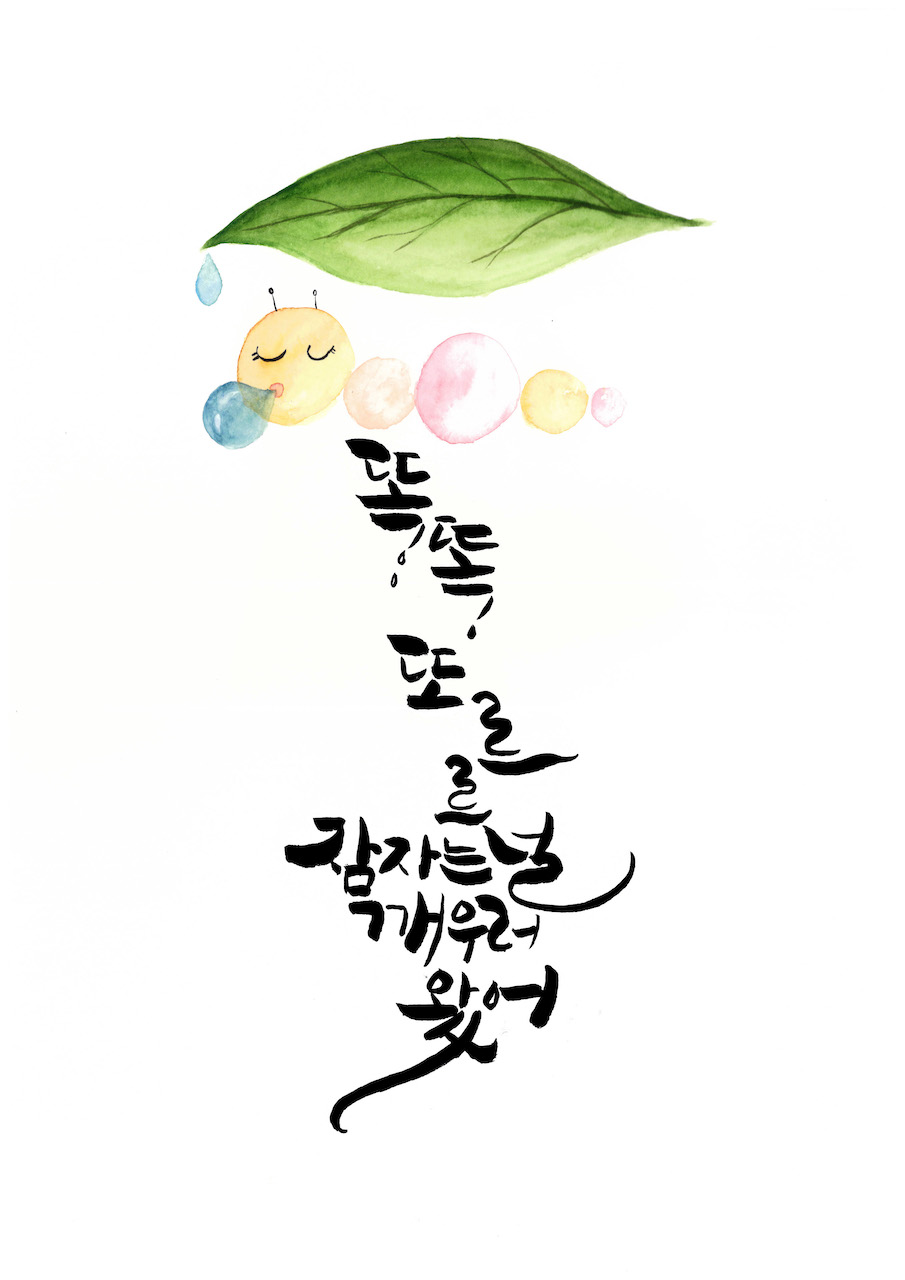 똑
똑
또르
르
잠자는널
깨우러
왔어